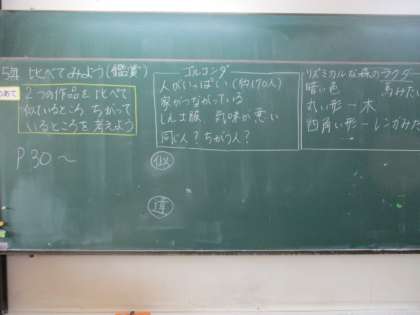 比べてみよう(鑑賞)
めあて
2つの作品を比べて
似ているところ、ちがって
いるところを考えよう
P30~
ゴルコンダ
人がいっぱい(約170人)
家がつながっている
しんし服 気味が悪い
同じ人?ちがう人?
似
違
リズミカルな森のラクダ
暗い色 馬みたい
丸い形ー木
四角い形ーレンガみた